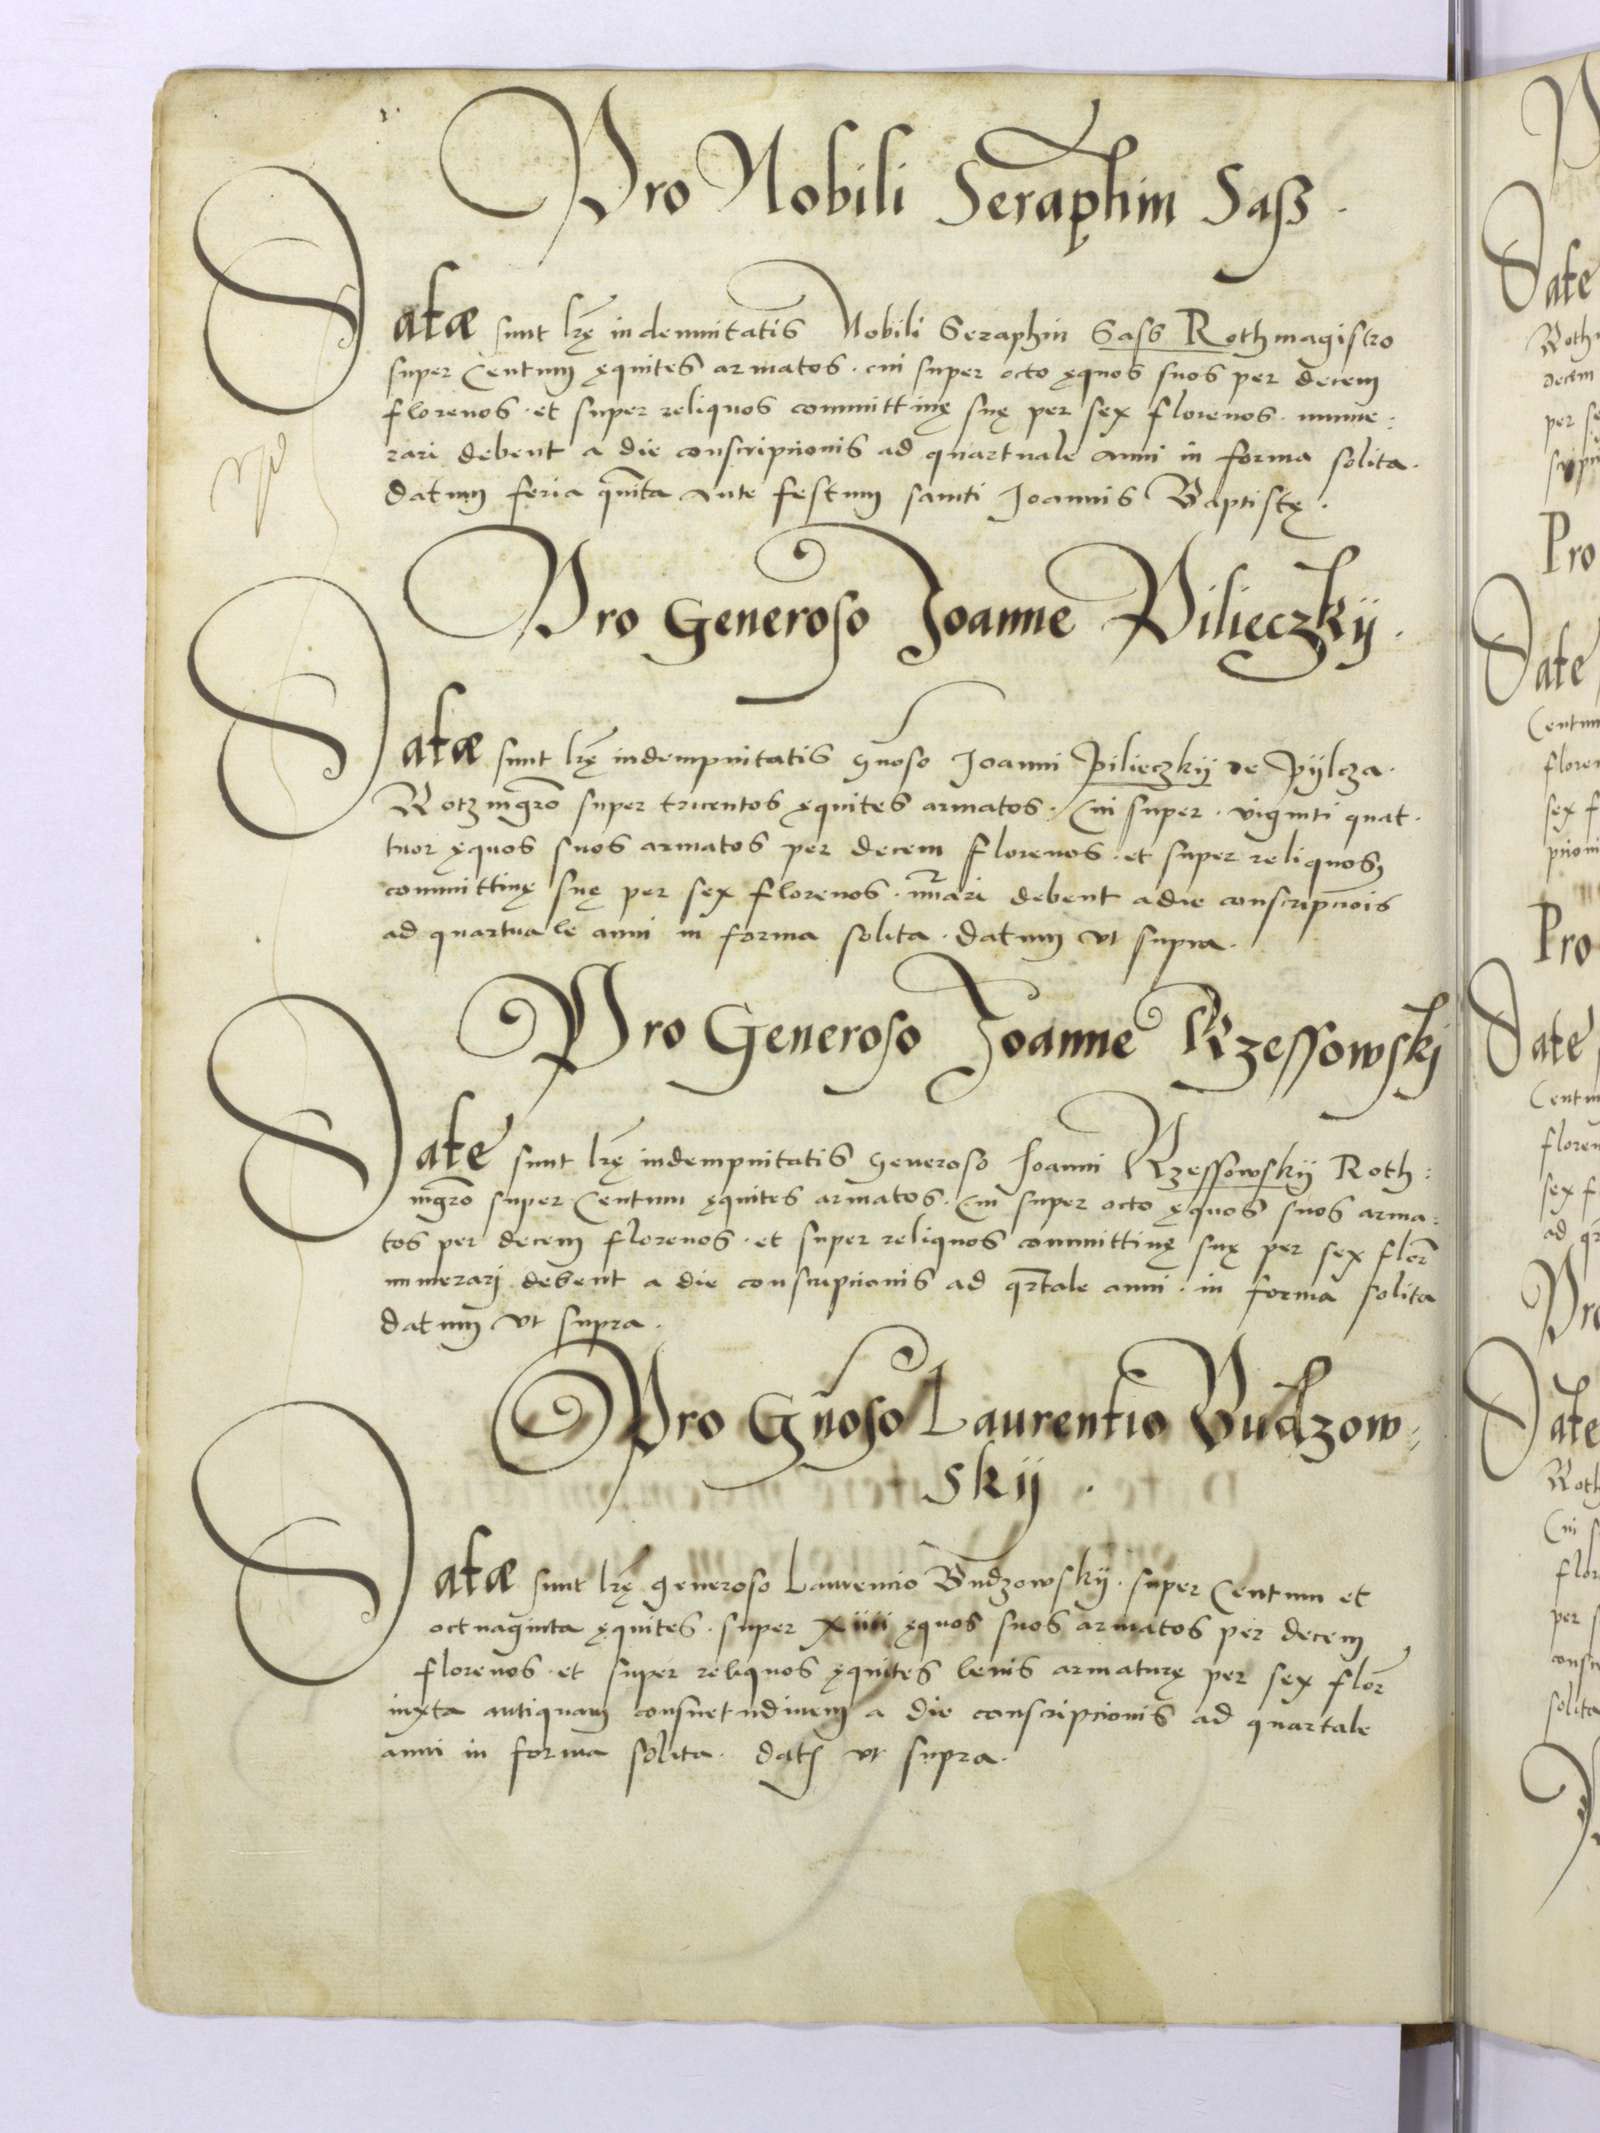 Pro Nobili Seraphin Saß.
Datæ sunt lrę indemnitatis Nobili Seraphin Sass Rothmagistro
super Centum ęquites armatos. cui super octo ęquos suos per decem
florenos. et super reliquos committinę suę per sex florenos. nume:
rari debent a die conscriptionis ad quartuale anni in forma solita.
datum feria quita ante festum sancti Joannis Baptistę.
Pro Generoso Joanne Pilieczkij.
Datæ sunt lrę indempnitatis gnoso Joanni Pilieczkij de Pijlcza.
Rotzmgro super tricentos ęquites armatos. Cui super. viginti quat.
tuor ęquos suos armatos per decem florenos. et super reliquos
committinę suę per sex florenos. nurari debent adie conscripcois
ad quartuale anni in forma solita. datum vt supra.
Pro Generoso Joanne Rzessowskj
Date sunt lrę indempnitatis generoso Joanni Rzessowskij Roth:
mgro super Centum ęquites armatos. Cui super octo ęquos suos arma:
tos per decem florenos. et super reliquos committinę suę per sex flor
numerarj debent a die conscripcionis ad qrtale anni. in forma solita
datum vt supra.
Pro Gnoso Laurentio Budzow=
skij.
Datæ sunt lrę generoso Laurencio Budzowskij. super Centum et
octuaginta ęquites. super xiiii ęquos suos armatos per decem
florenos. et super reliquos ęquites levis armaturę per sex flor
iuxta antiquam consuetudinem a die conscripcionis ad quartale
anni in forma solita. dat vt supra.
Date
Roth
decem
per se
Pro
Date
Centum
floren
sex f
Pro
Date
Centu
floren
sex f
ad qr
Pro
Date
Roth
Cui s
flor
per s
consc
solita